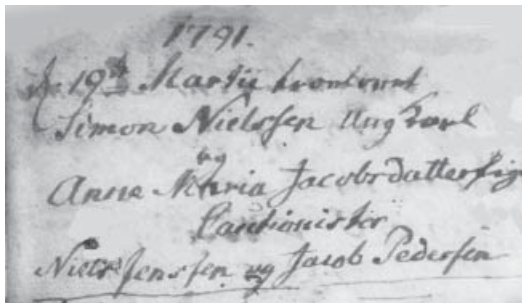 1791.
19de Martii trolovet
Simon Nielssen Ung Karl
og
Anne Maria Jacobsdatter Pige
Cautionister
Niels Jenssen og Jacob Pedersen